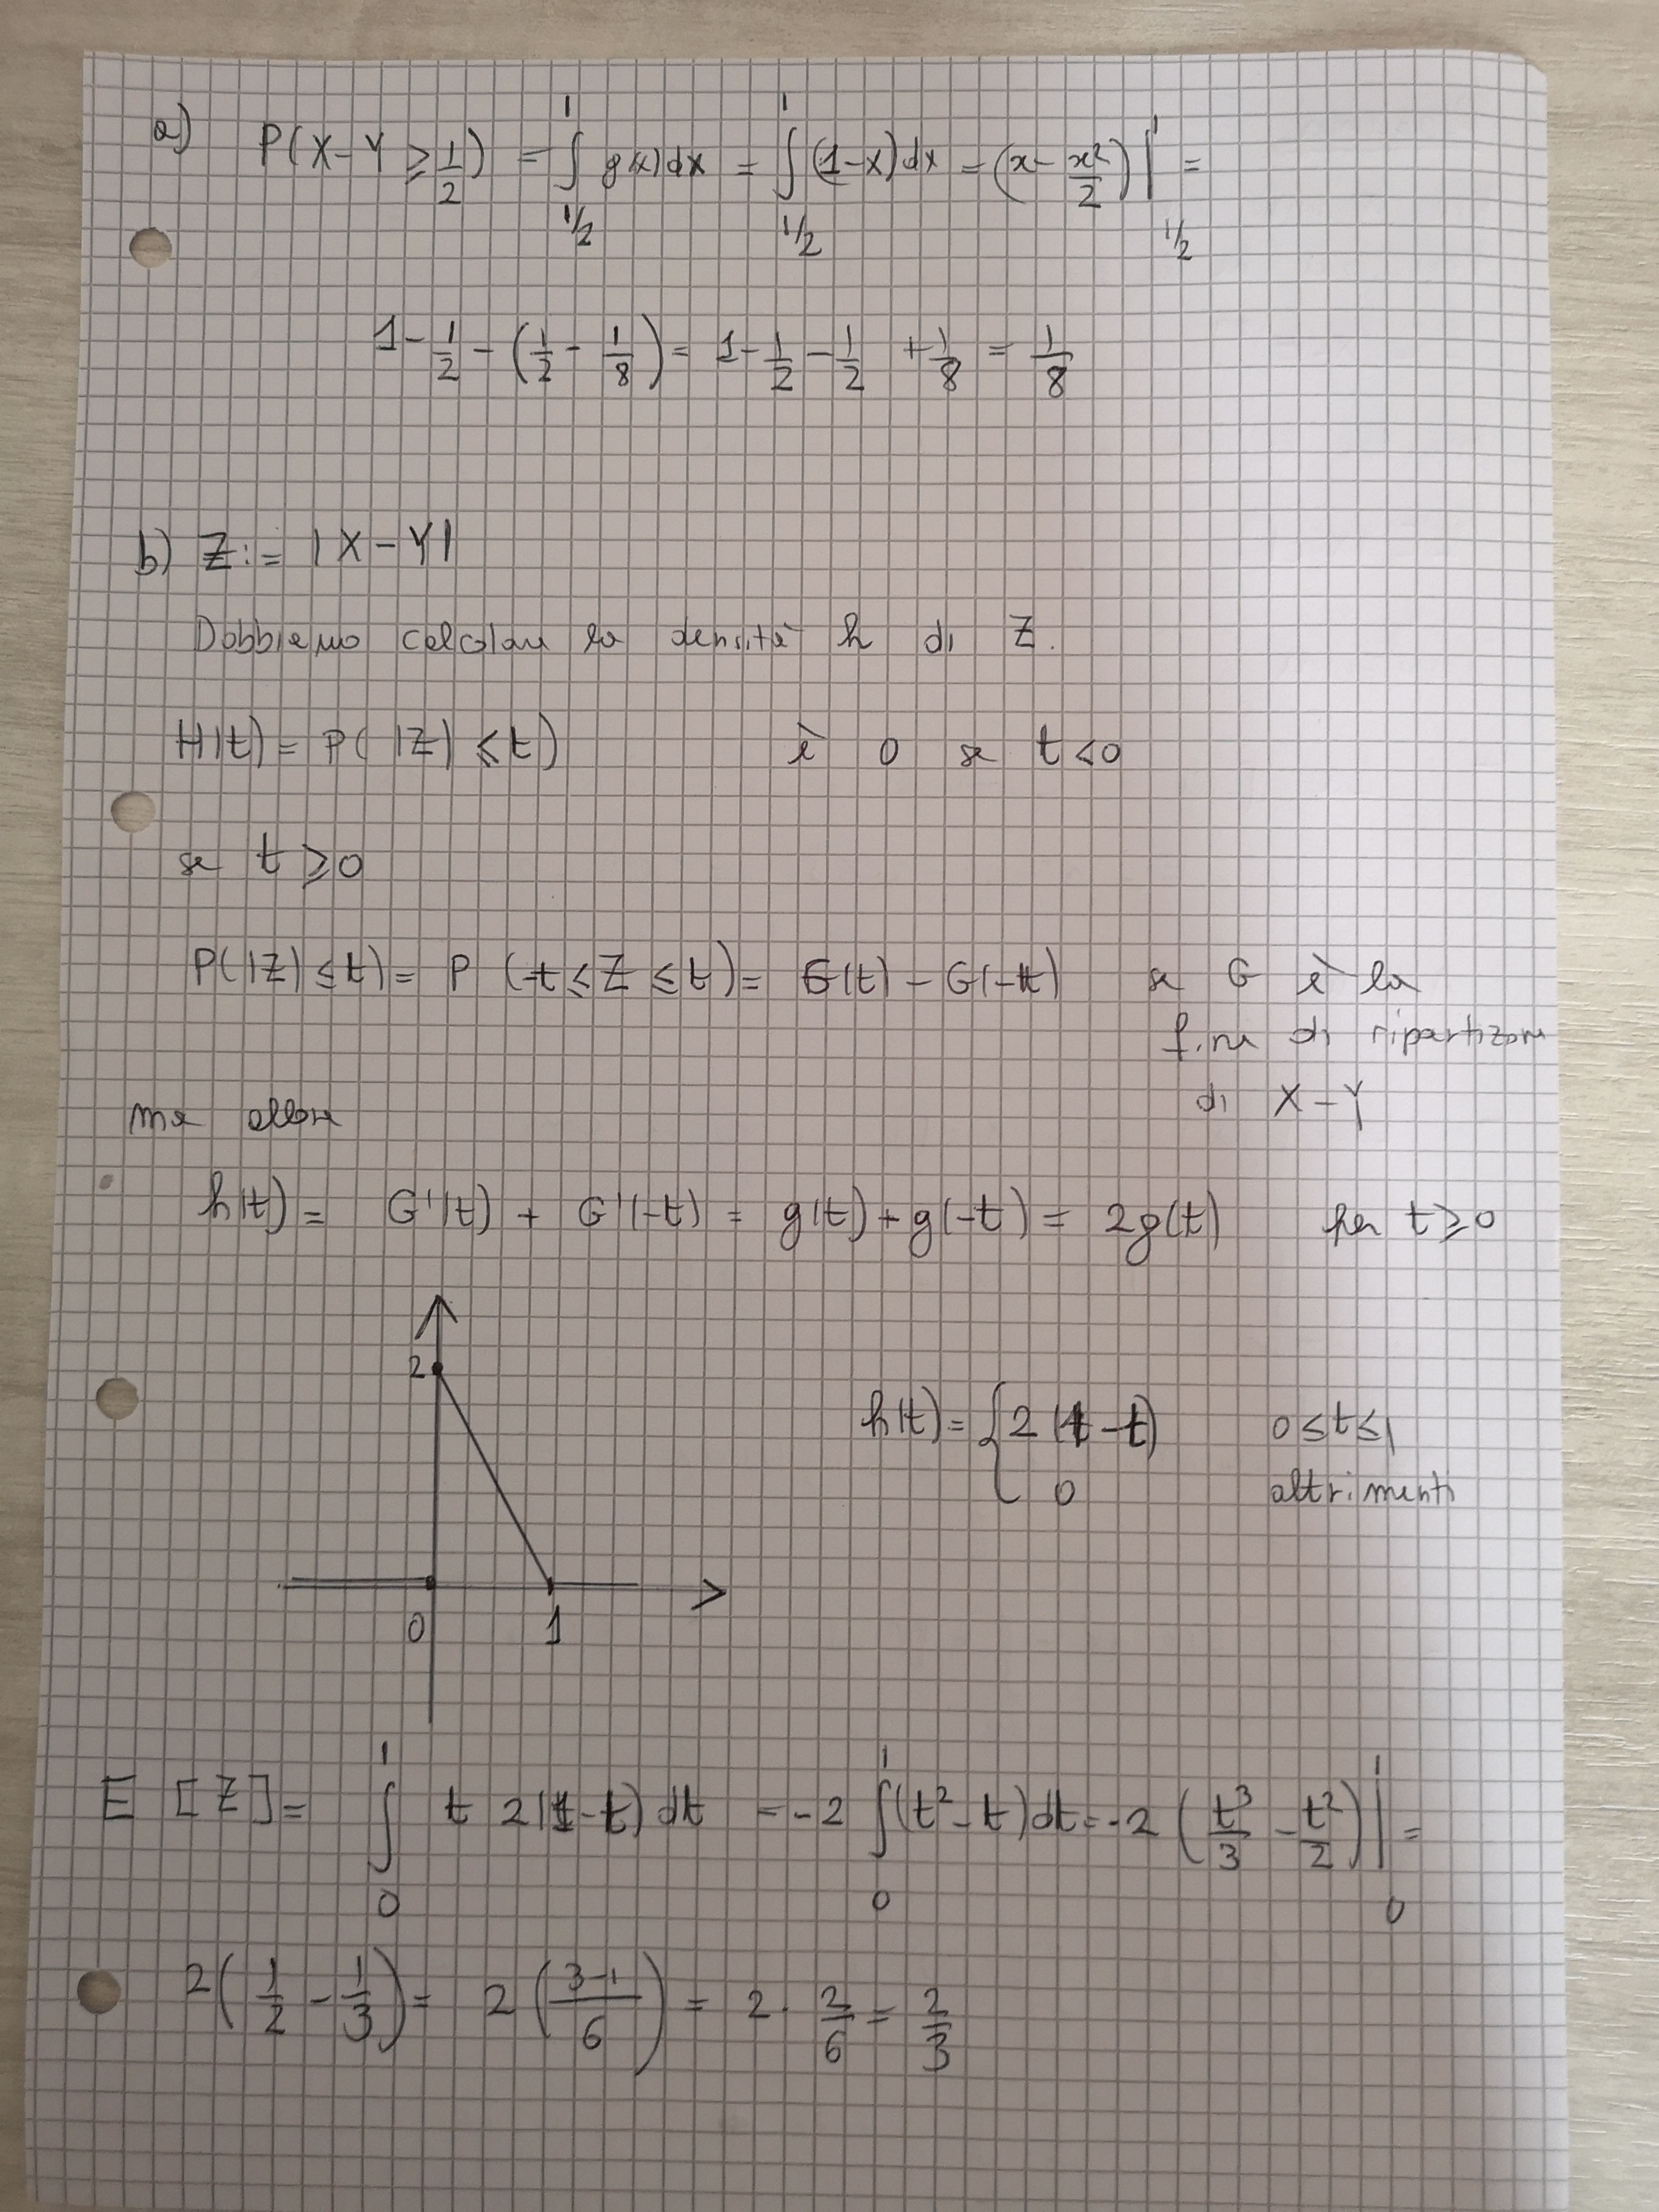 a) P(X-Y ≥ 1/2) = ∫_{1/2}^{1} g(x)dx = ∫_{1/2}^{1} (1-x)dx = (x - x²/2)|_{1/2}^{1} =
1 - 1/2 - (1/2 - 1/8) = 1 - 1/2 - 1/2 + 1/8 = 1/8
b) Z := |X-Y|
Dobbiamo calcolare la densità h di Z.
H(t) = P(|Z| ≤ t) è 0 se t<0
se t ≥ 0
P(|Z| ≤ t) = P(-t ≤ Z ≤ t) = G(t) - G(-t) se G è la
f.ne di ripartizione
di X-Y
ma allora
h(t) = G'(t) + G'(-t) = g(t) + g(-t) = 2g(t) per t ≥ 0
2
h(t) = { 2(1-t) 0 ≤ t ≤ 1
0 altrimenti
0 1
E[Z] = ∫_{0}^{1} t 2(1-t) dt = -2 ∫_{0}^{1} (t² - t)dt = -2 (t³/3 - t²/2)|_{0}^{1} =
2(1/2 - 1/3) = 2((3-1)/6) = 2 · 2/6 = 2/3